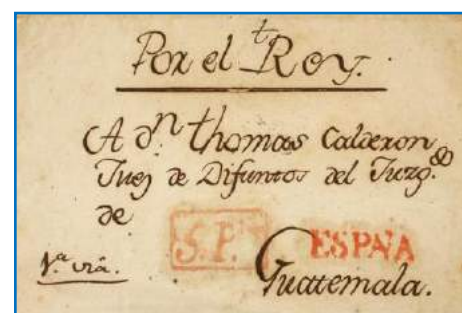 Por el Rey.
A Dn. Thomas Calderon
Juez de Difuntos del Juzgdo.
de
S.P. ESPNA
1.a via. Guatemala.